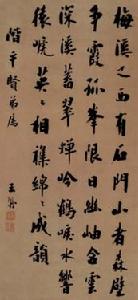 梅溪之西有石門山者森壁
爭霞孤峯限日幽岫含雲
深溪蓄翠蟬吟鶴唳水響
猿啼英英相雜綿綿成韻
階平賢弟屬 王